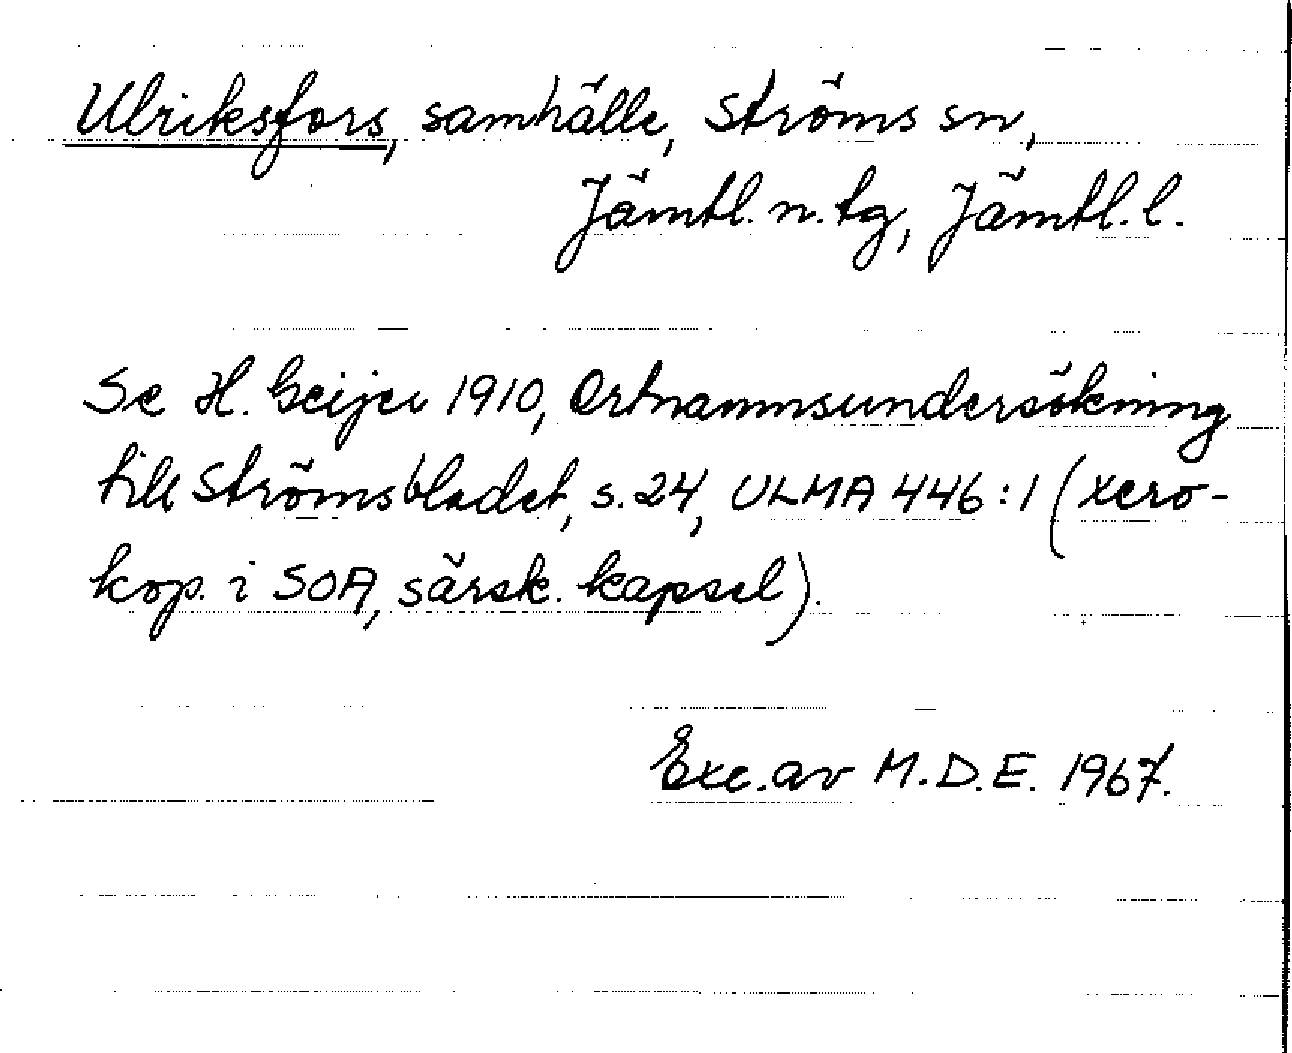 Ulriksfors, samhälle, Ströms sn,
Jämtl. n. tg, Jämtl. l.
Se H. Geijer 1910, Ortnamnsundersökning
till Strömsbladet, s. 24, ULMA 446:1 (xero-
kop. i SOA, särsk. kapsel).
Exc. av M.D.E. 1967.